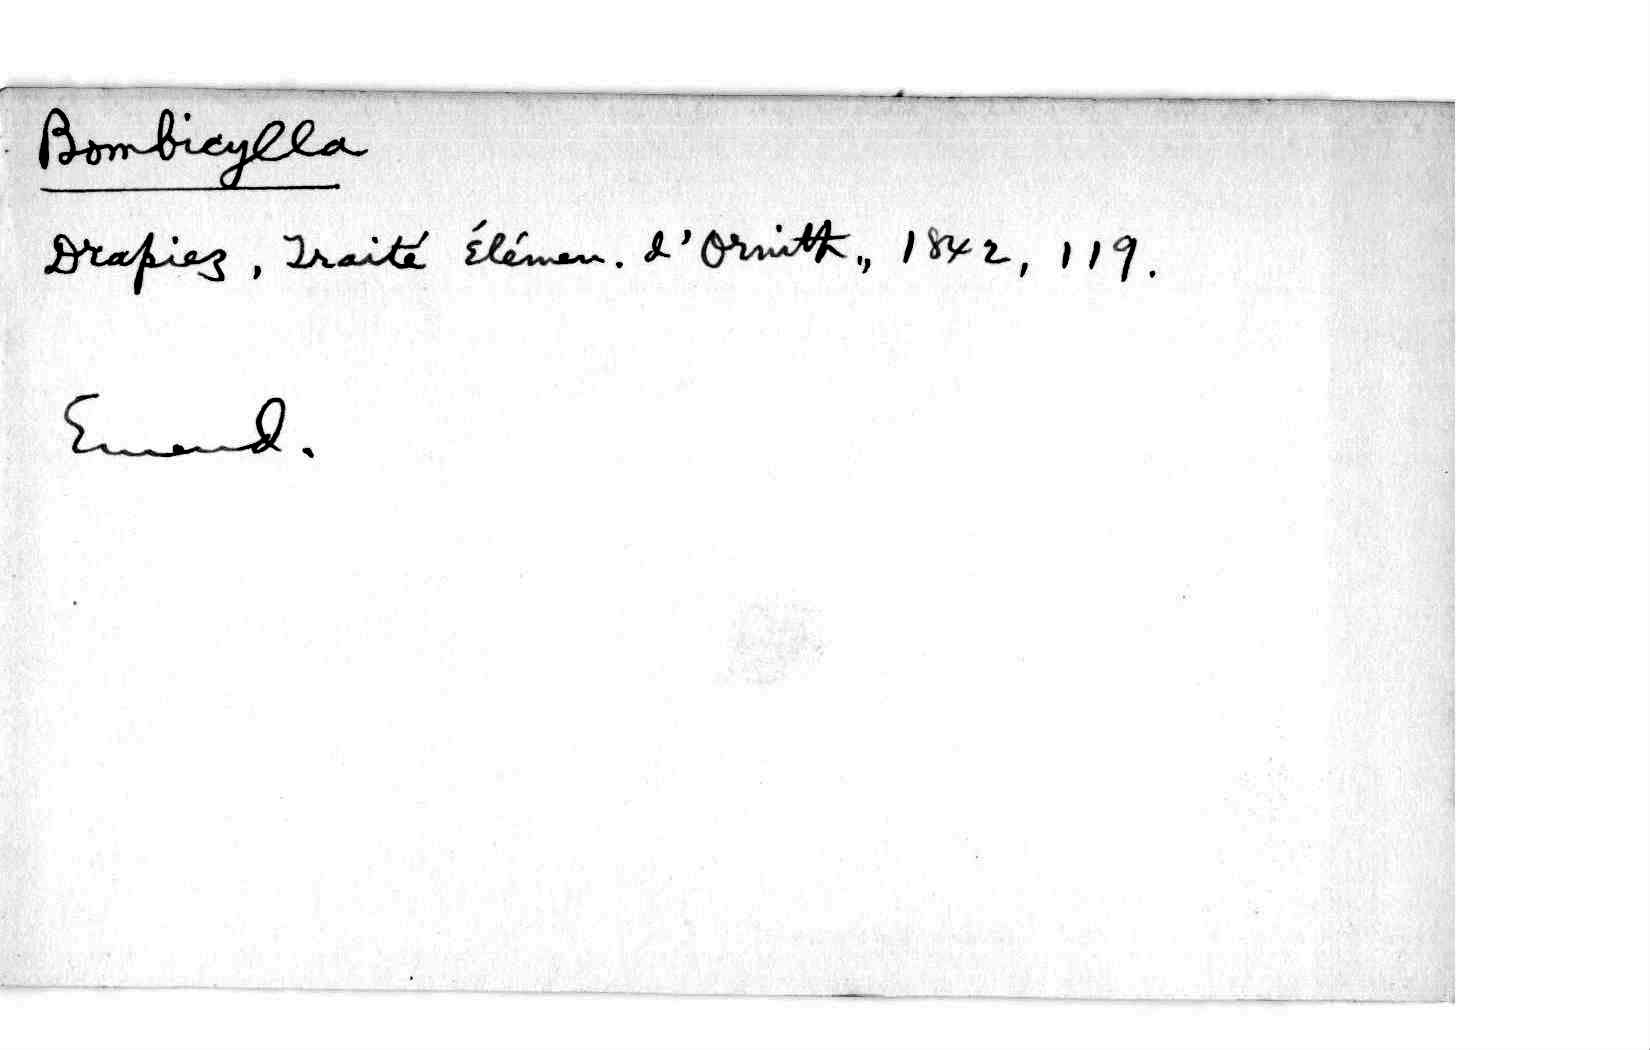 Bombicylla
Drapiez, Traité Élémen. d'Ornith., 1842, 119.
Emend.